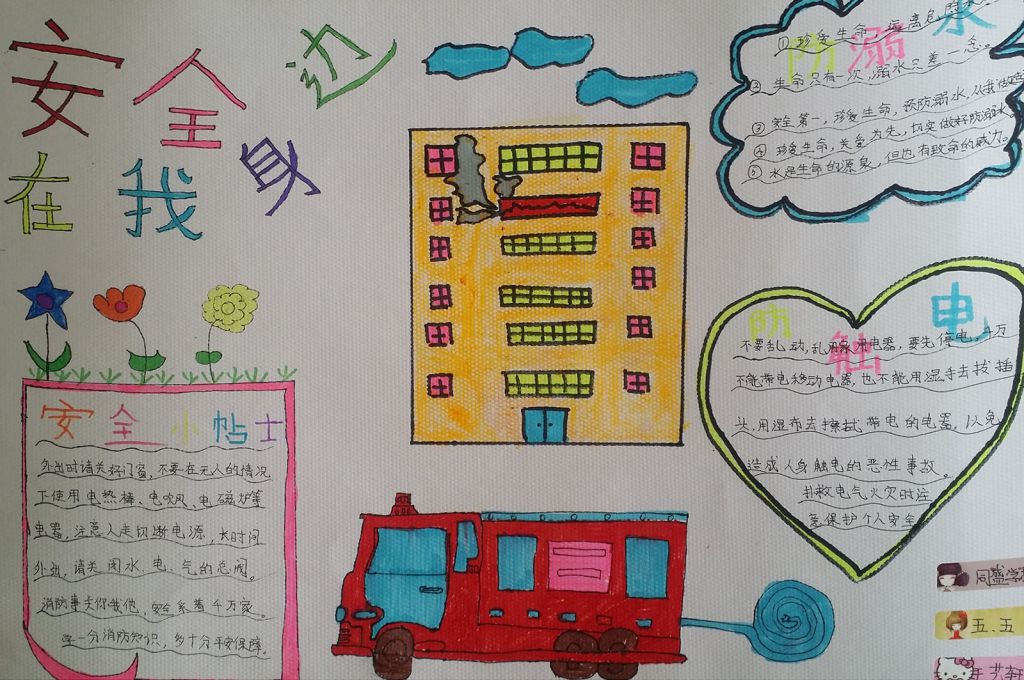 安全边
在我身
安全小帖士
外出时请关好门窗,不要在无人的情况
下使用电热棒、电吹风、电磁炉等
电器,注意人走切断电源,长时间
外出,请关闭水、电、气的总阀。
消防事关你我他,安全系着千万家。
学一分消防知识,多十分平安保障。
防溺水
①珍爱生命,远离危险水
②生命只有一次,溺水只差一念。
③安全第一,珍爱生命,预防溺水,从我做起
④珍爱生命,关爱为先,切实做好防溺水
⑤水是生命的源泉,但也有致命的威力。
防触电
不要乱动,乱用电器,要先停电,千万
不能带电移动电器,也不能用湿手去拔插
头,用湿布去擦拭带电的电器,以免
造成人身触电的恶性事故。
扑救电气火灾时注
意保护个人安全
同盛学
五、五
轩